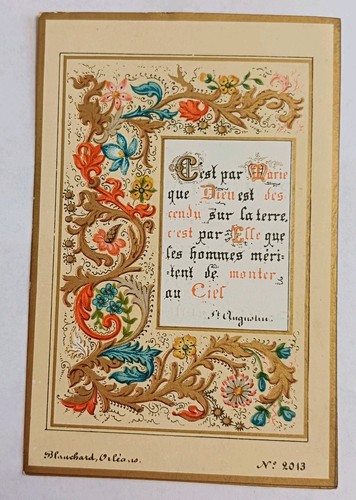 C'est par Marie
que Dieu est des
cendu sur la terre,
c'est par Elle que
les hommes méri-
tent de monter
au Ciel
St Augustin.
Blanchard, Orléans.
No. 2013